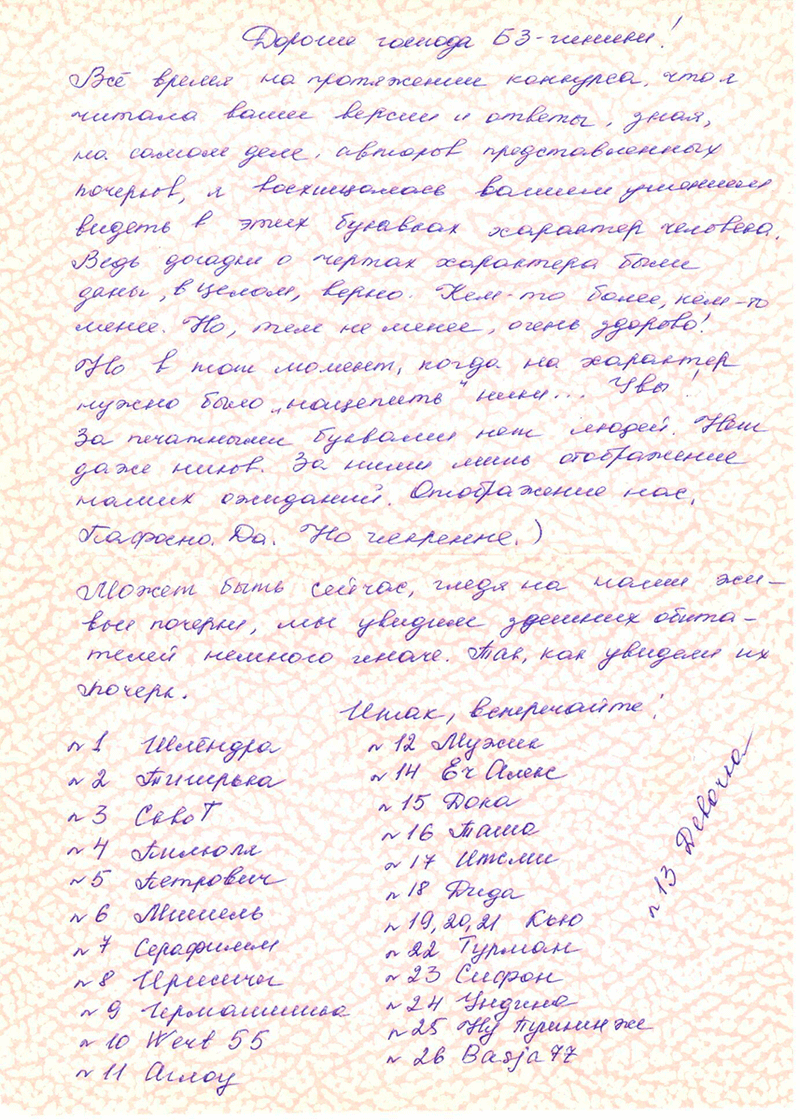 Дорогие господа БЗ-шники!
Всё время на протяжении конкурса, что я
читала ваши версии и ответы, зная,
на самом деле, авторов представленных
почерков, я восхищалась вашим умением
видеть в этих буковках характер человека.
Ведь догадки о чертах характера были
даны, в целом, верно. Кем-то более, кем-то
менее. Но, тем не менее, очень здорово!
Но в тот момент, когда на характер
нужно было „нацепить" ники... Увы!
За печатными буквами нет людей. Нет
даже ников. За ними лишь отображение
наших ожиданий. Отображение нас.
Пафосно. Да. Но искренне.)
Может быть сейчас, глядя на наши жи-
вые почерки, мы увидим здешних обита-
телей немного иначе. Так, как увидели их
почерк.
Итак, встречайте!
№1 Шлёндра
№2 Тигирька
№3 СквоТ
№4 Пилюля
№5 Петрович
№6 Мишель
№7 Серафилем
№8
№9 Гермашишка
№10 Wert 55
№11 Аглоу
№12 Мужик
№14 Еч Алекс
№15 Дока
№16 Таша
№17 Итсми
№18 Дида
№19,20,21 Кью
№22 Гурман
№23 Сифон
№24 Ундина
№25 Ну Пушкин же
№26 Basja77
№13 Девочка